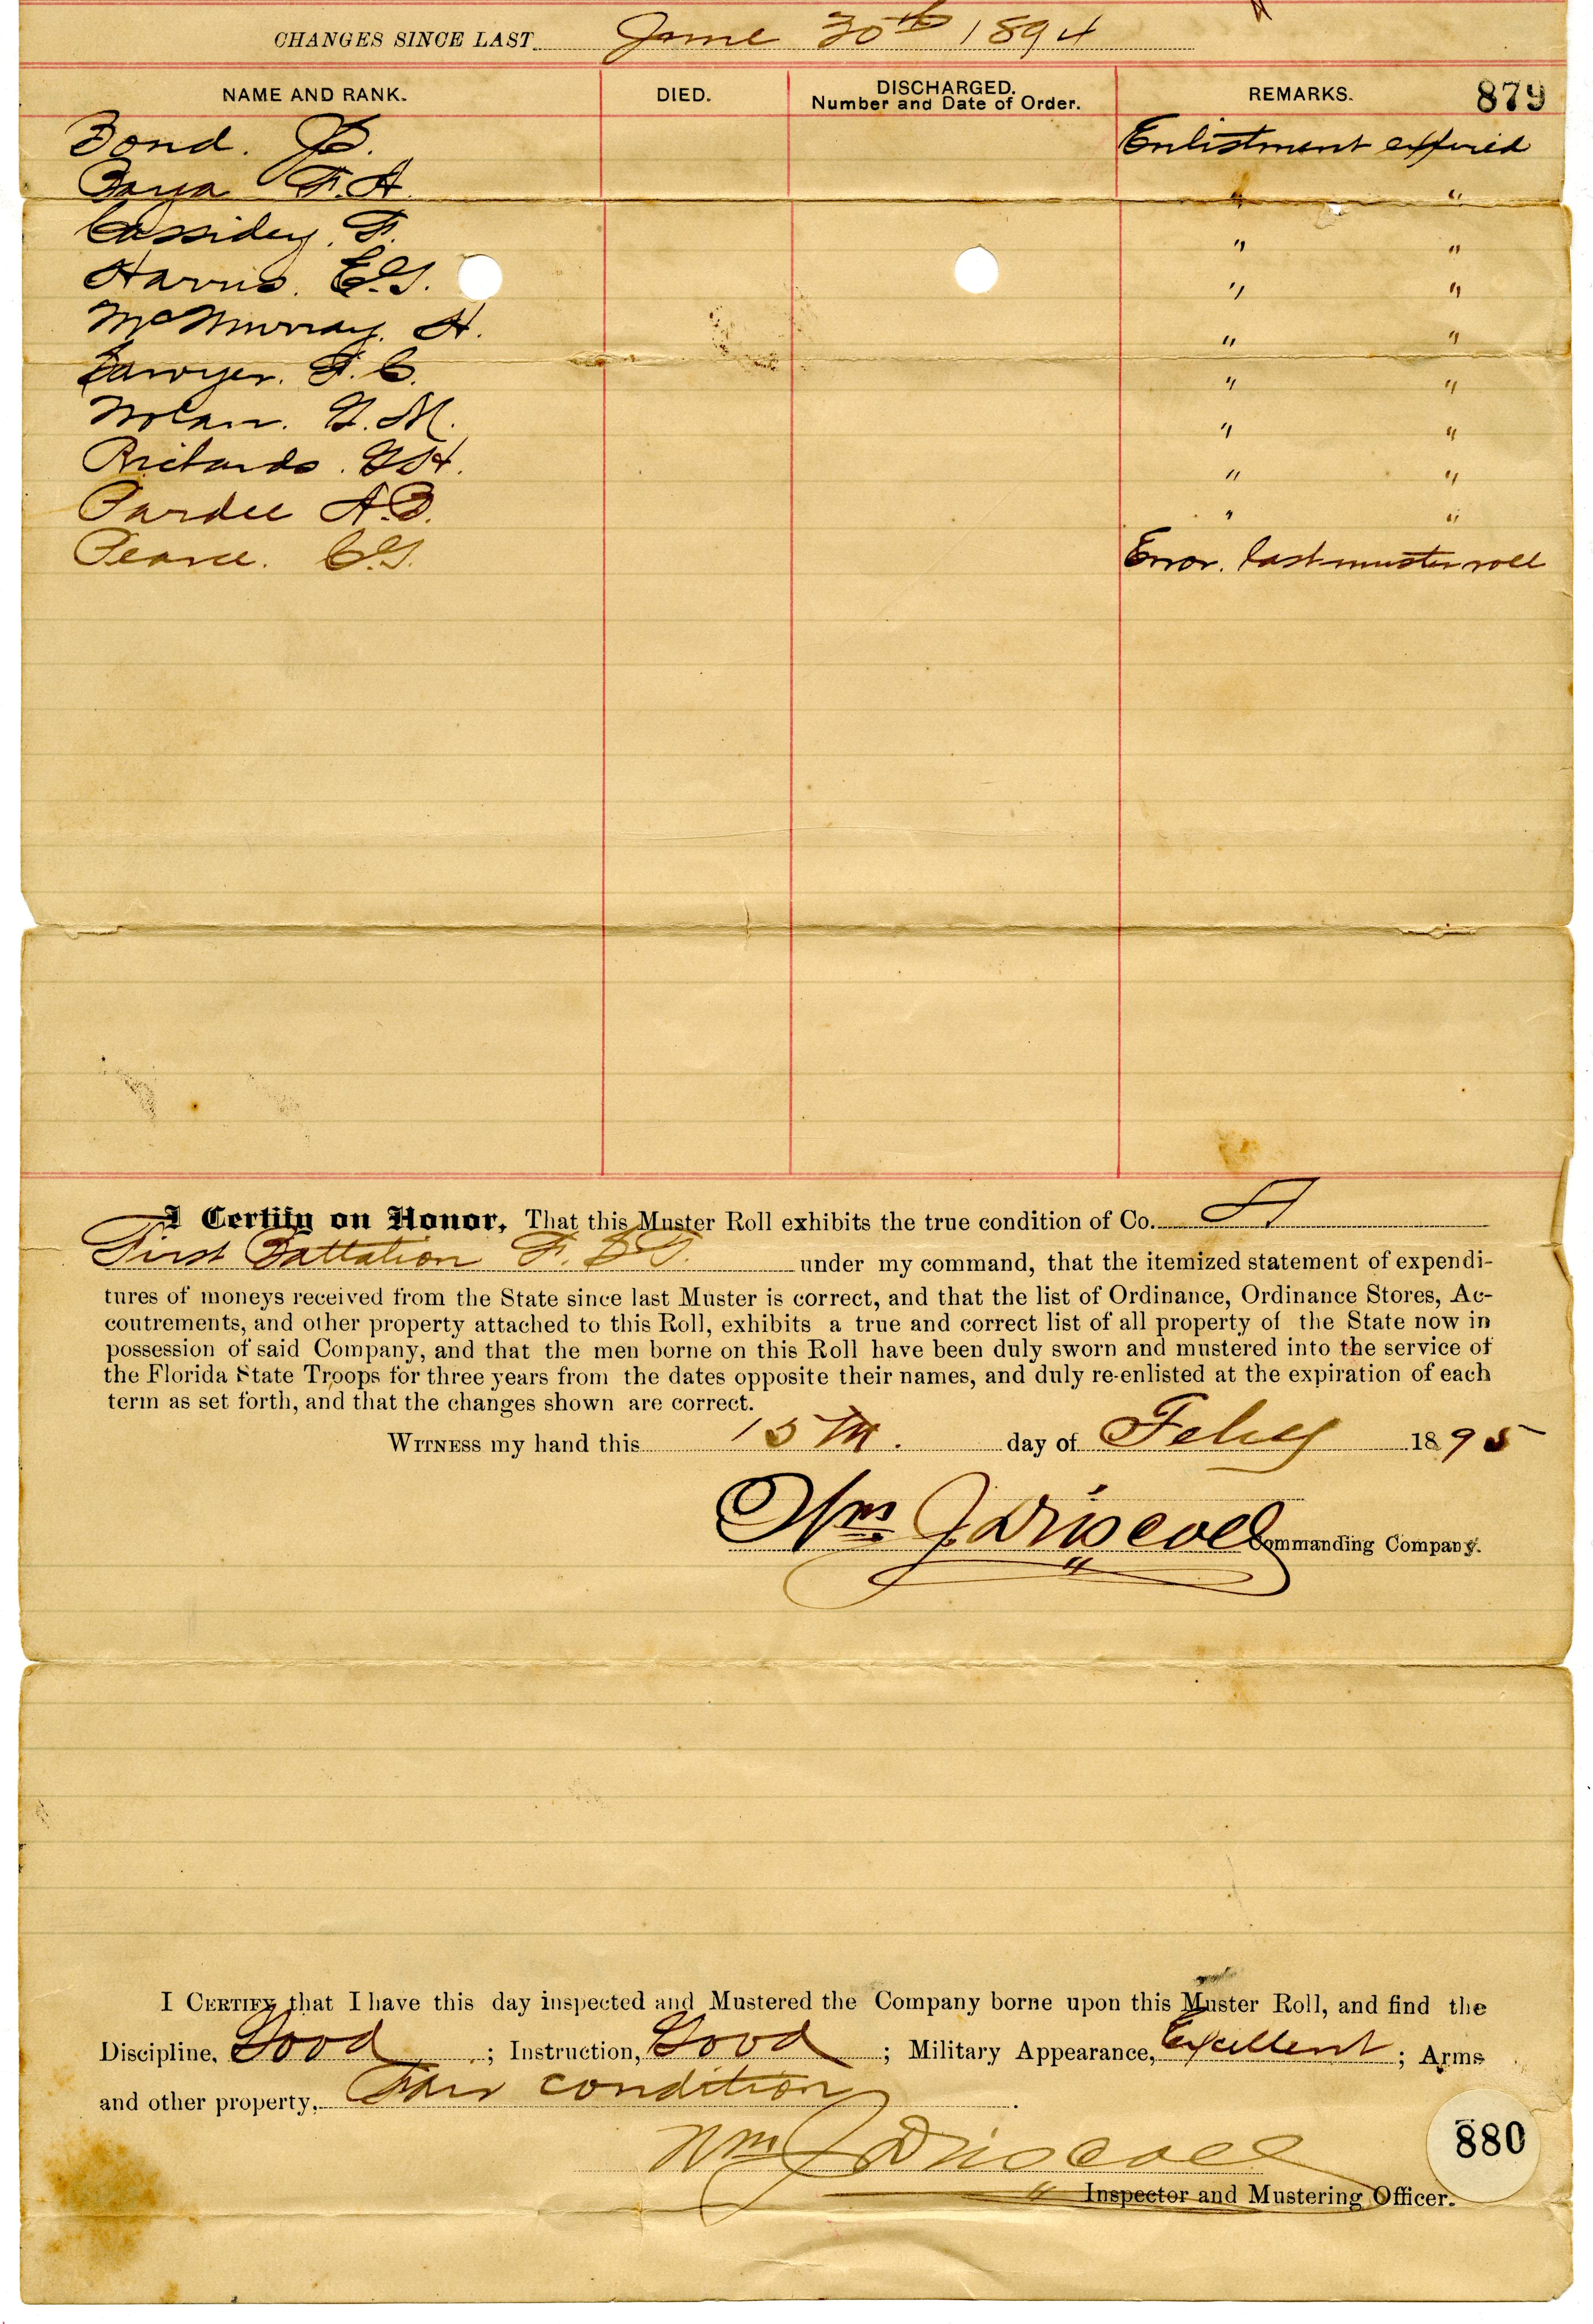 CHANGES SINCE LAST June 30th 1894
NAME AND RANK. DIED. DISCHARGED. Number and Date of Order. REMARKS. 879
Bond. Enlistment expired
Baya F. A. " "
Cassidey. F. " "
Harris. C. G. " "
McMurray. H. " "
Sawyer. F. C. " "
Nolan. G. M. " "
Richards. G H. " "
Pardee A. B. " "
Pearce. C. G. Error. last muster roll
I Certify on Honor, That this Muster Roll exhibits the true condition of Co. A
First Battalion F. S T. under my command, that the itemized statement of expendi-
tures of moneys received from the State since last Muster is correct, and that the list of Ordinance, Ordinance Stores, Ac-
coutrements, and other property attached to this Roll, exhibits a true and correct list of all property of the State now in
possession of said Company, and that the men borne on this Roll have been duly sworn and mustered into the service of
the Florida State Troops for three years from the dates opposite their names, and duly re-enlisted at the expiration of each
term as set forth, and that the changes shown are correct.
WITNESS my hand this 15th. day of Feby 1895
Wm J. Driscoll Commanding Company.
I CERTIFY that I have this day inspected and Mustered the Company borne upon this Muster Roll, and find the
Discipline, Good ; Instruction, Good ; Military Appearance, Excellent ; Arms
and other property, Fair condition .
Wm J Driscoll
Inspector and Mustering Officer.
880